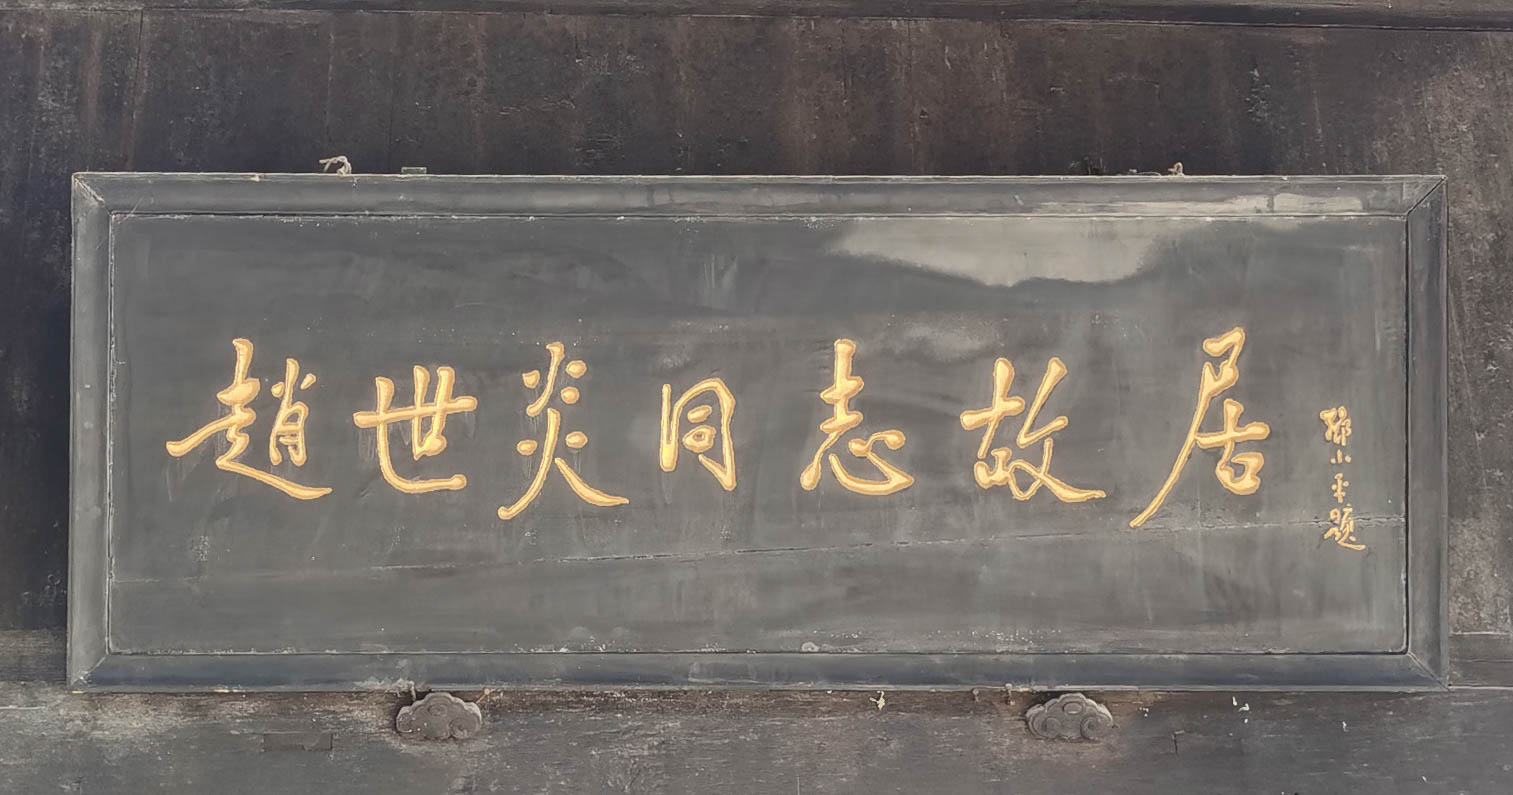 趙世炎同志故居
邓小平题